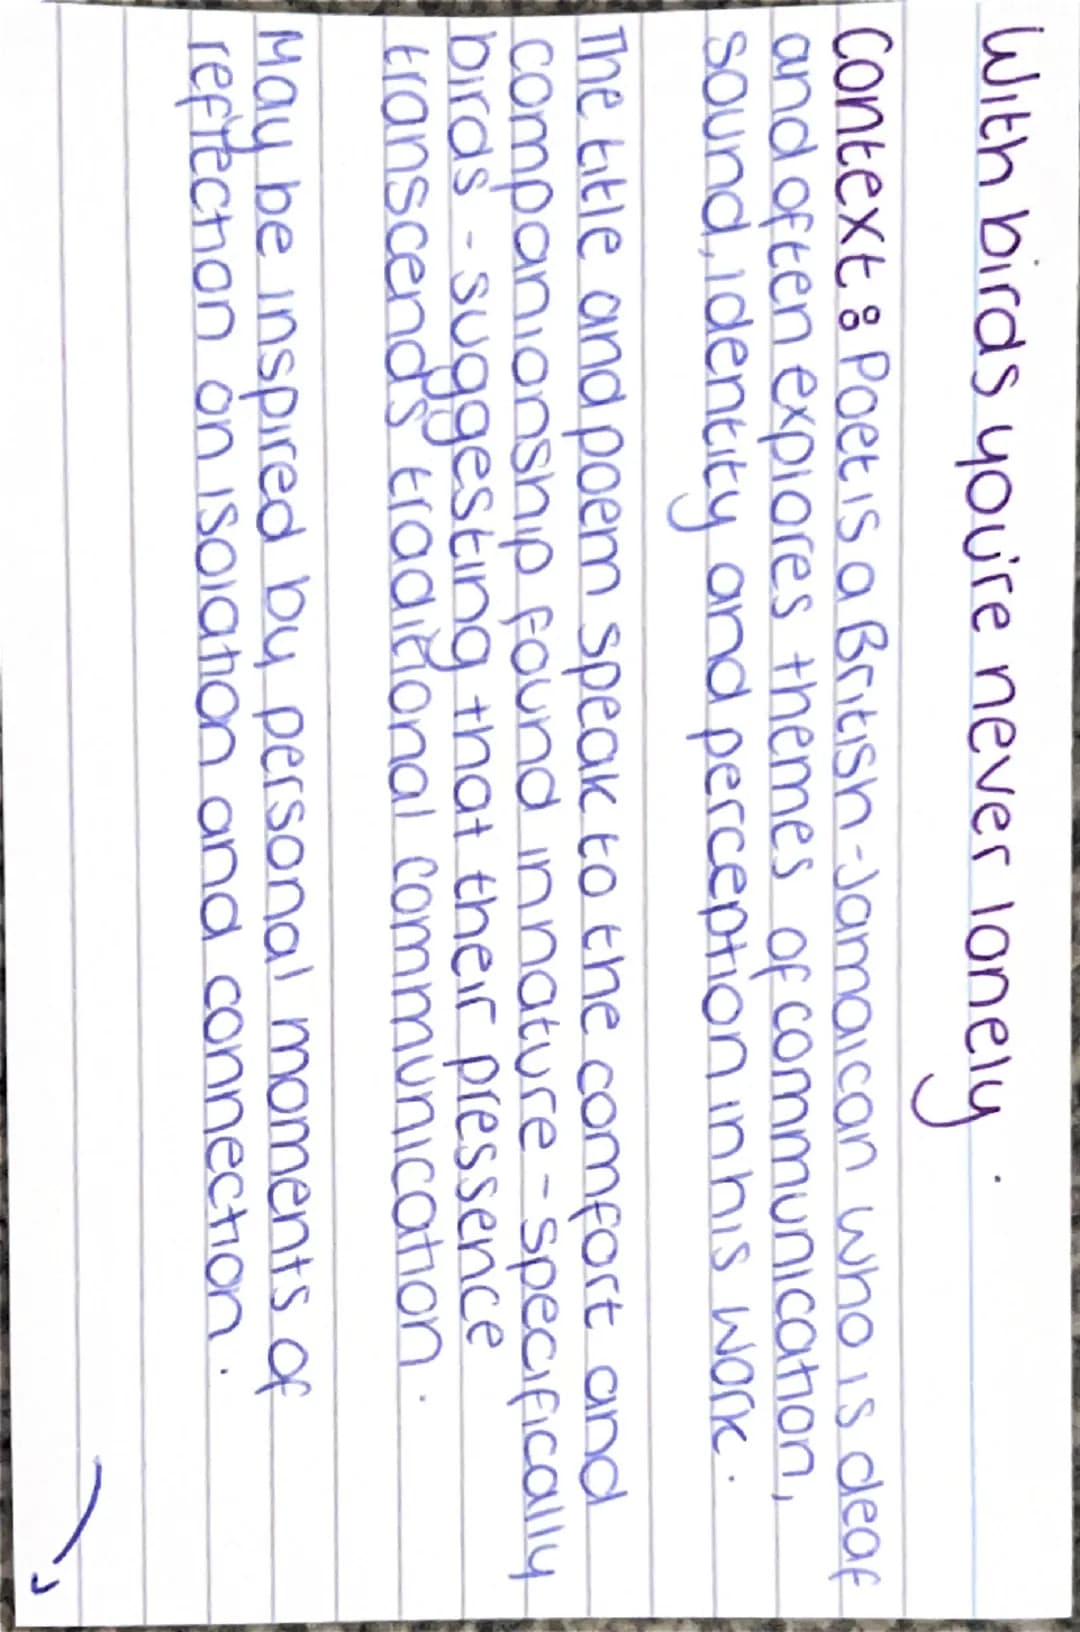 With birds you're never lonely.
Context: Poet is a British-Jamaican who is deaf
and often explores themes of communication,
sound, identity and perception in his work.
The title and poem speak to the comfort and
companionship found in nature - specifically
birds - suggesting that their pressence
transcends traditional communication.
May be inspired by personal moments of
reflection on isolation and connection.